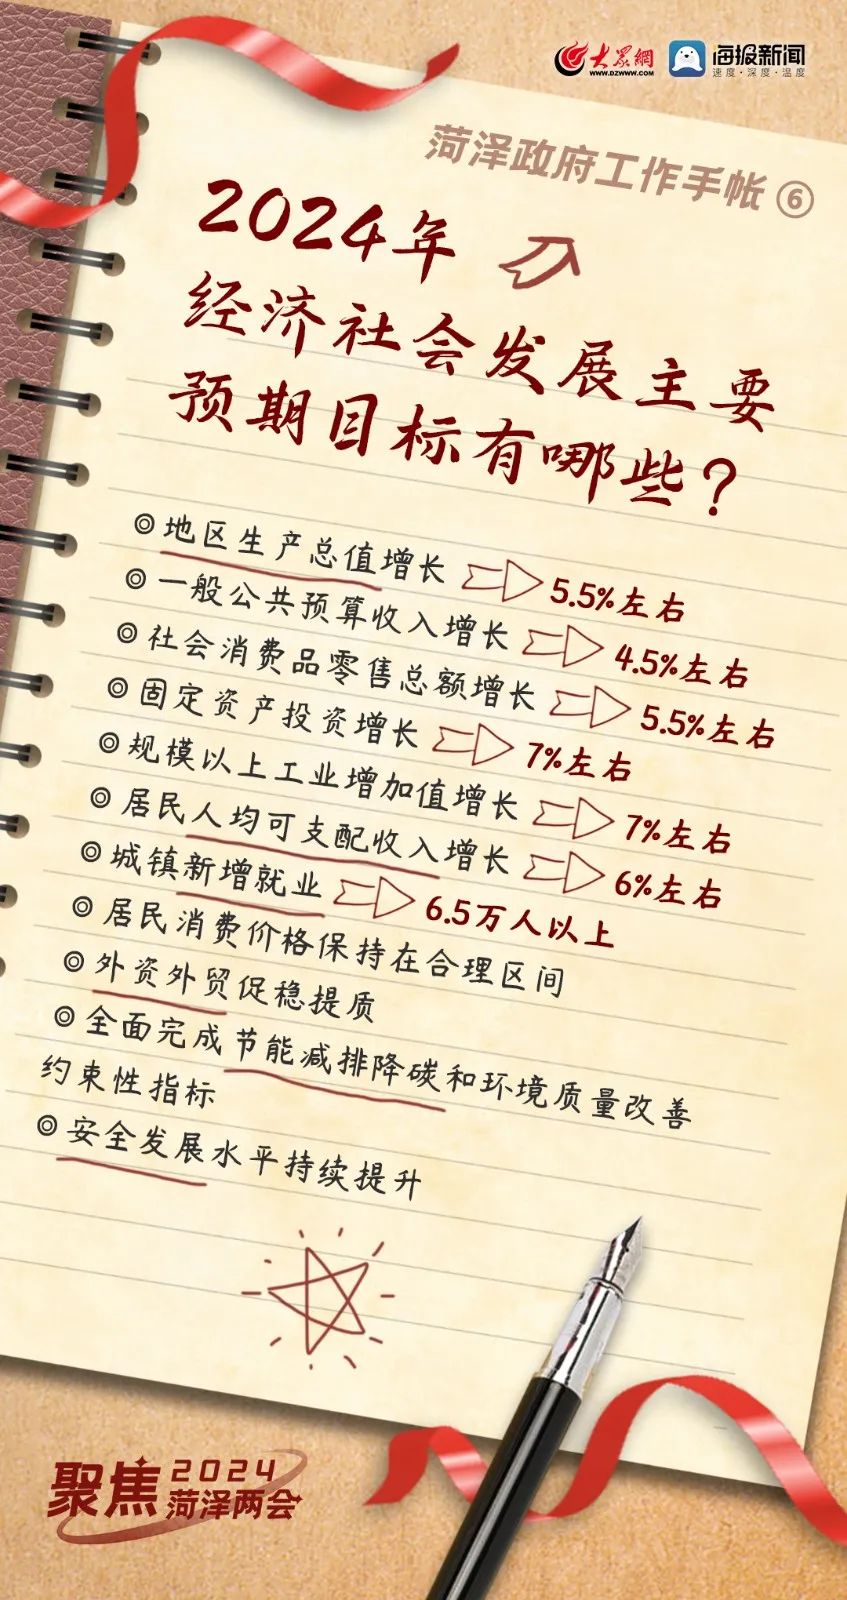 大众網
WWW.DZWWW.COM
海报新闻
速度·深度·温度
菏泽政府工作手帐⑥
2024年
经济社会发展主要
预期目标有哪些？
◎地区生产总值增长 5.5%左右
◎一般公共预算收入增长 4.5%左右
◎社会消费品零售总额增长 5.5%左右
◎固定资产投资增长 7%左右
◎规模以上工业增加值增长 7%左右
◎居民人均可支配收入增长 6%左右
◎城镇新增就业 6.5万人以上
◎居民消费价格保持在合理区间
◎外资外贸促稳提质
◎全面完成节能减排降碳和环境质量改善
约束性指标
◎安全发展水平持续提升
聚焦2024
菏泽两会